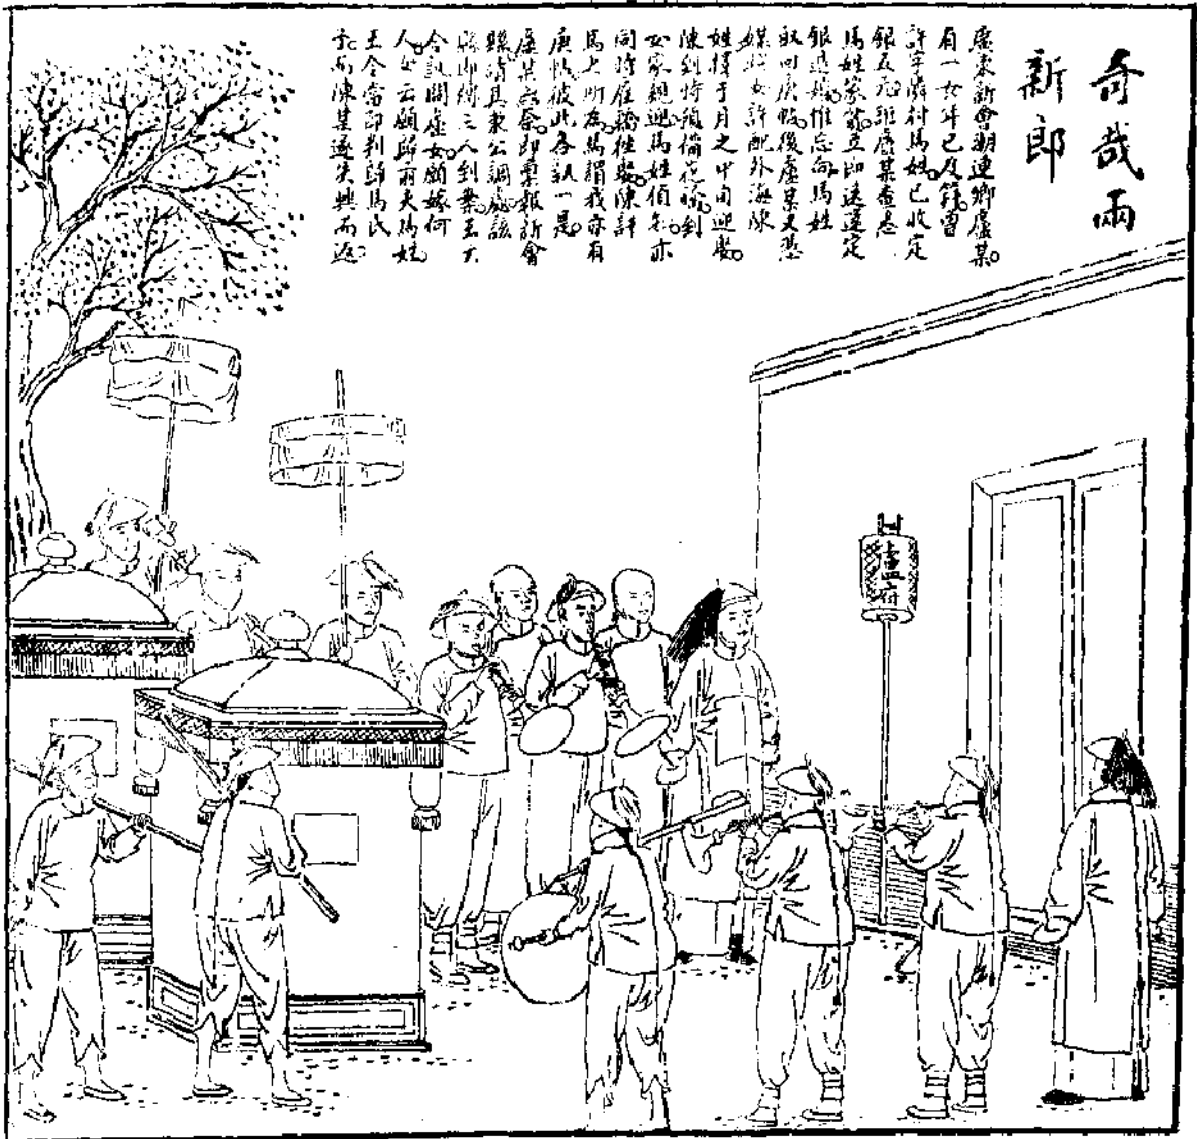 奇哉兩
新郎
廣東新會潮連鄉盧某。
有一女年已及笄。曾
許字隣村馬姓。已收定
銀五元。維盧某查悉
馬姓家貧。立即送還定
銀退婚。惟忘向馬姓
取回庚帖。後盧某又憑
媒將女許配外海陳
姓擇于月之中旬迎娶。
陳到時預備花轎。到
女家親迎。馬姓偵知亦
同時雇轎往娶。陳詳
馬之所為。馬謂我亦有
庚帖。彼此各執一是。
盧某無奈。即稟報新會
縣。請其秉公調處。該
縣即傳三人到案。王大
令訊問盧女願嫁何
人。女云願歸前夫馬姓。
王令當即判歸馬氏
子。而陳某遂失興而返
盧府